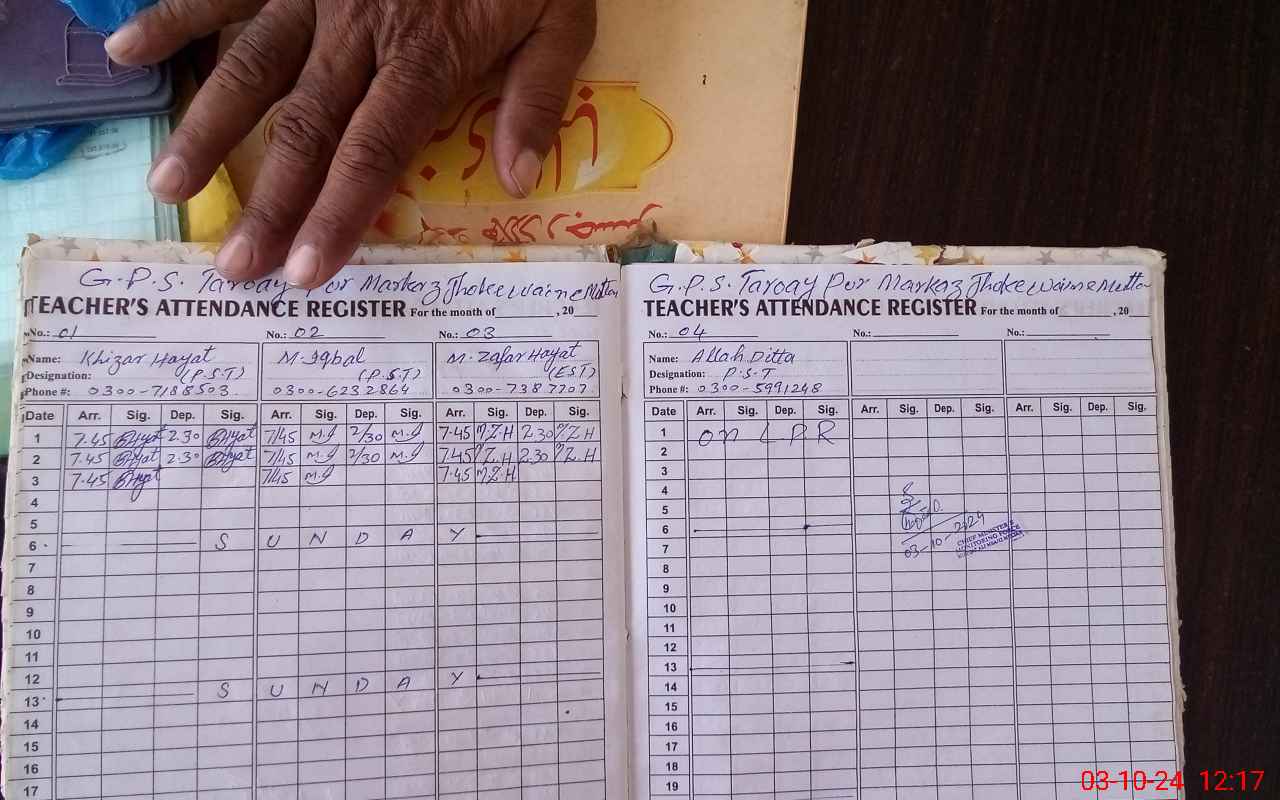 G.P.S. Taroay Pur Markaz Jhoke waine Mutton
TEACHER'S ATTENDANCE REGISTER For the month of , 20
No.: 01 No.: 02 No.: 03
Name: Khizar Hayat M. Iqbal M. Zafar Hayat
Designation: (P.S.T) (P.S.T) (EST)
Phone #: 0300-7188503 0300-6232864 0300-7387707
Date Arr. Sig. Dep. Sig. Arr. Sig. Dep. Sig. Arr. Sig. Dep. Sig.
1 7.45 Hayat 2.30 Hayat 7/45 M.I 2/30 M.I 7.45 M.Z.H 2.30 M.Z.H
2 7.45 Hayat 2.30 Hayat 7/45 M.I 2/30 M.I 7.45 M.Z.H 2.30 M.Z.H
3 7.45 Hayat 7/45 M.I 7.45 M.Z.H
4
5
6 S U N D A Y
7
8
9
10
11
12
13 S U N D A Y
14
15
16
17
G.P.S. Taroay Pur Markaz Jhoke waine Mutton
TEACHER'S ATTENDANCE REGISTER For the month of , 20
No.: 04 No.: No.:
Name: Allah Ditta
Designation: P.S.T
Phone #: 0300-5991248
Date Arr. Sig. Dep. Sig. Arr. Sig. Dep. Sig. Arr. Sig. Dep. Sig.
1 on L P R
2
3
4
5
6
7
03-10-2024
CHIEF MINISTER'S
MONITORING FORCE
8
9
10
11
12
13
14
15
16
17
18
19
03-10-24 12:17